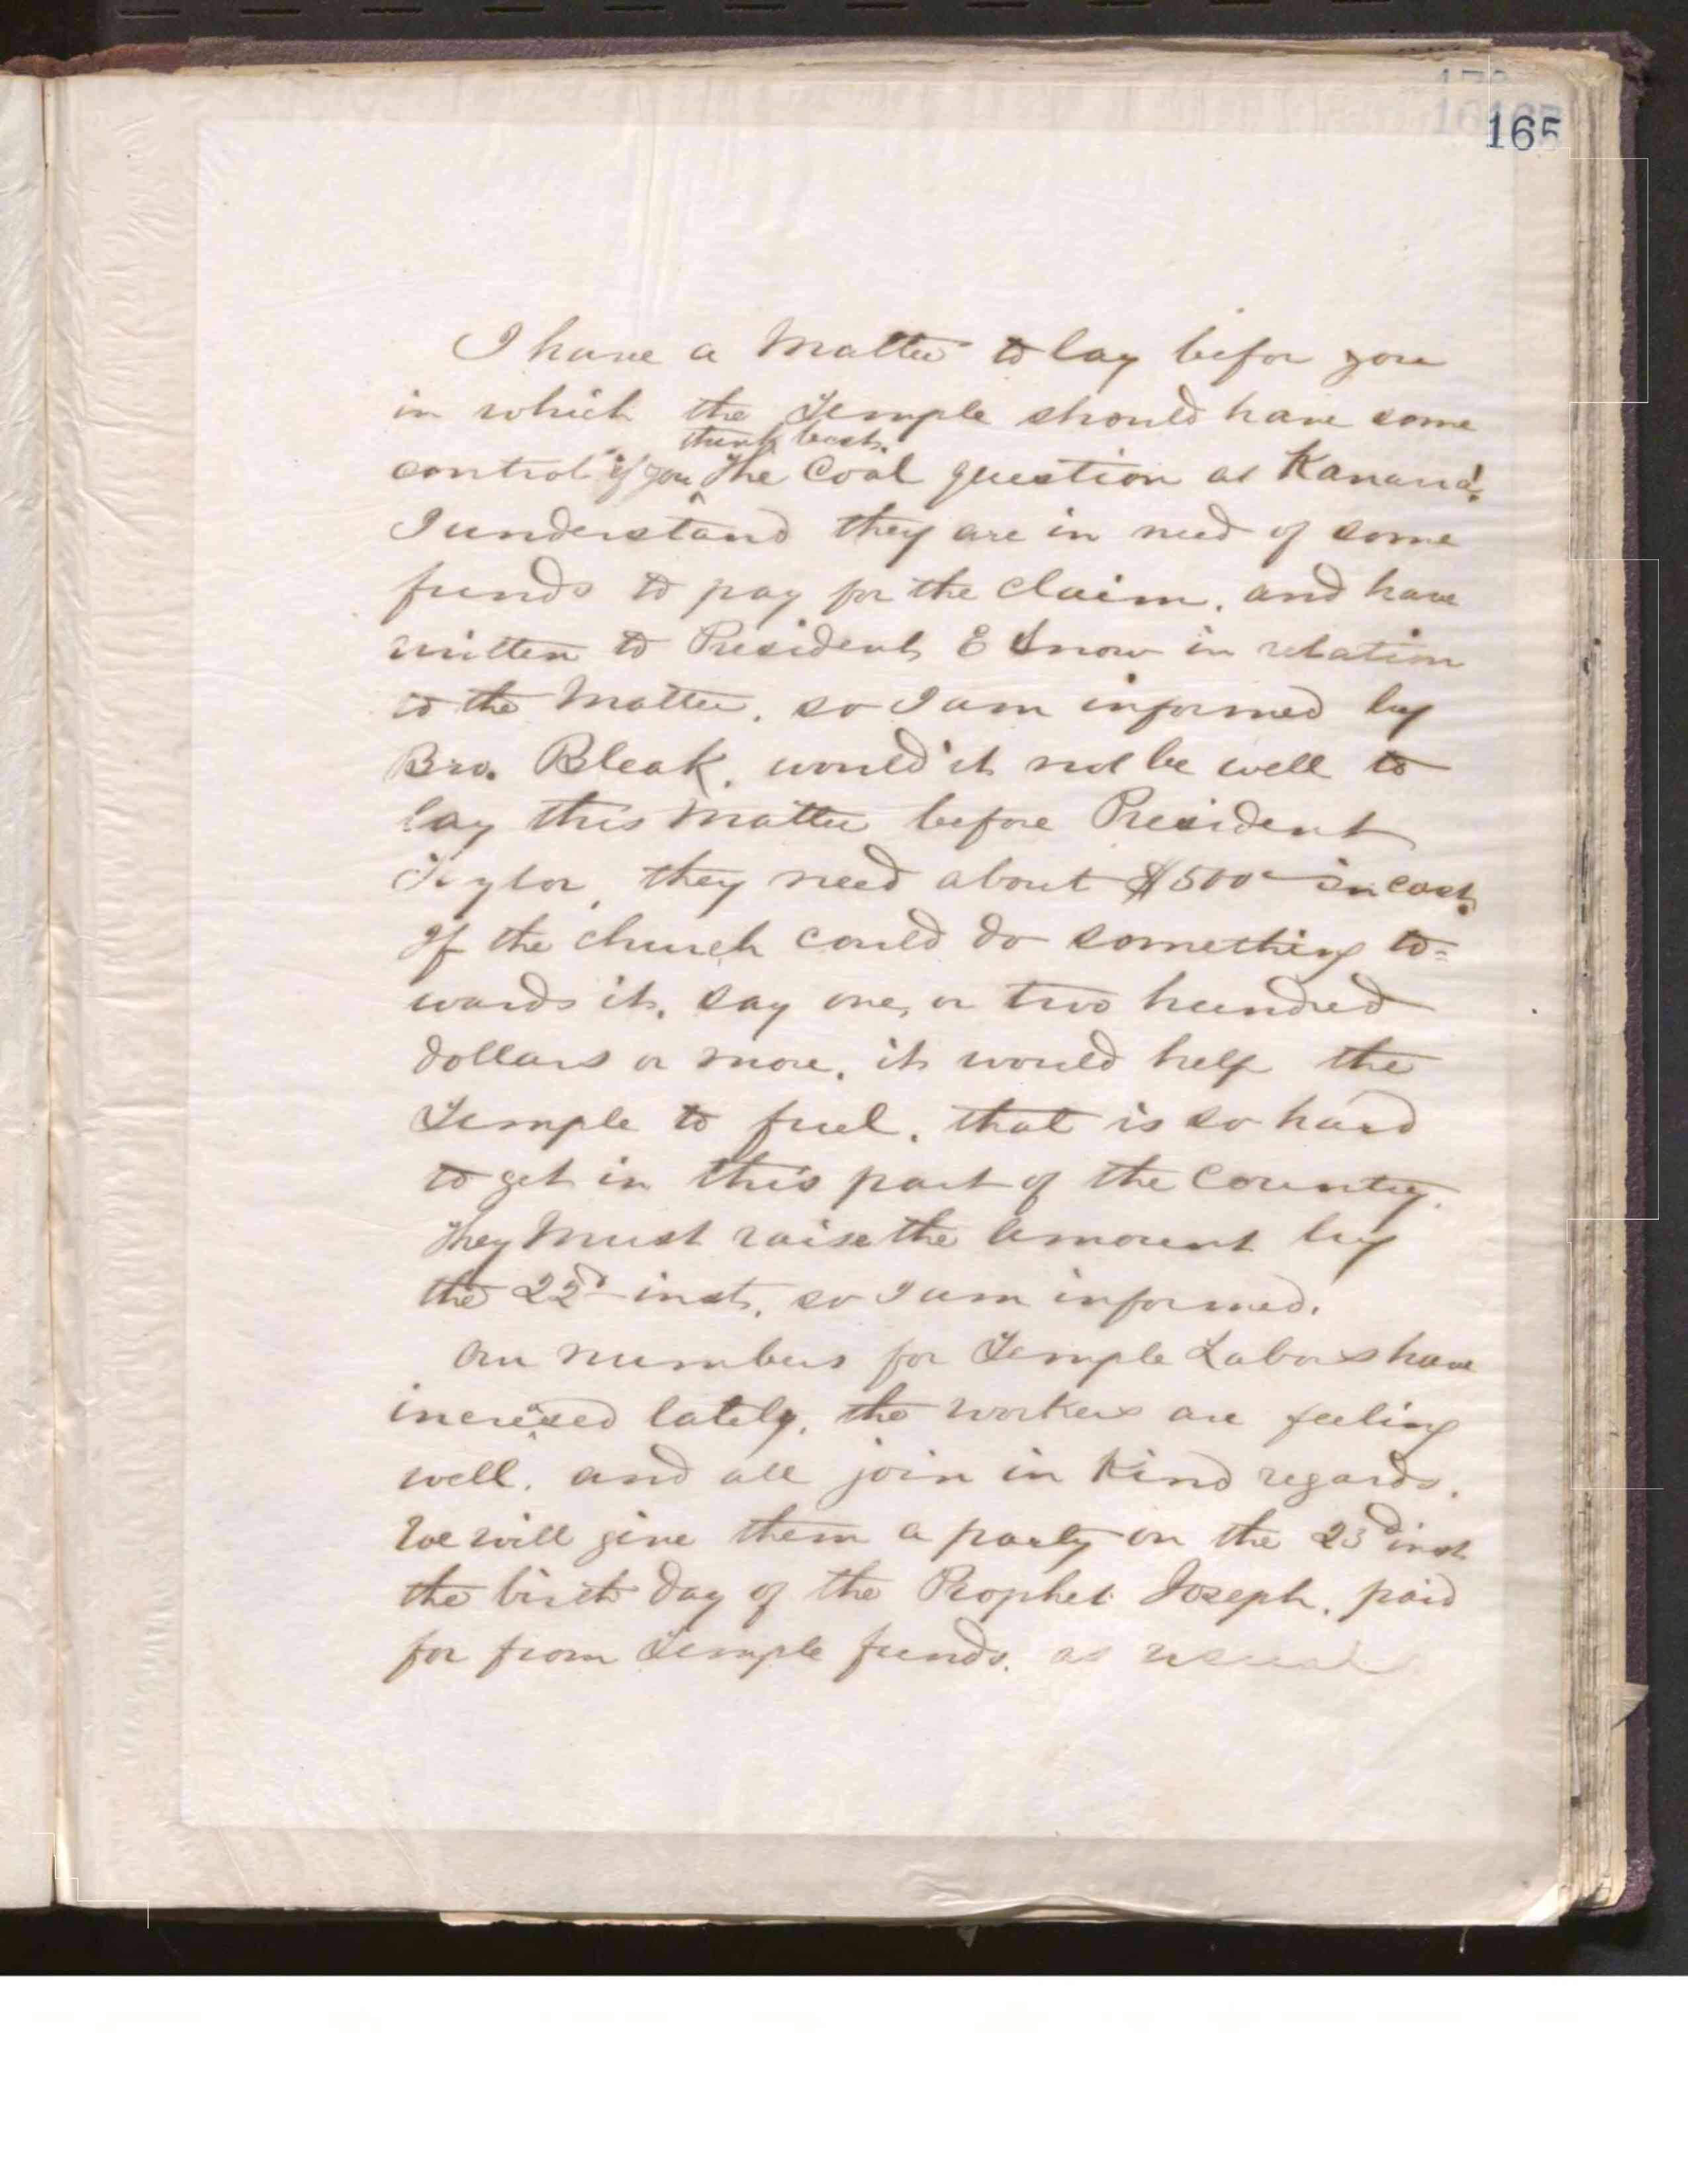 165
I have a Matter to lay befor you
in which the Temple should have some
think best.
control if you ^ The Coal question at Kanarra.
I understand they are in need of some
funds to pay for the claim, and have
written to President E Snow in relation
to the Matter, so I am informed by
Bro. Bleak, would it not be well to
lay this Matter before President
Taylor, they need about $500 in cash.
If the church could do something to=
wards it, say one, or two hundred
dollars or more, it would help the
Temple to fuel, that is so hard
to get in this part of the Country.
They Must raise the amount by
the 22d inst, so I am informed.
Our numbers for Temple Labors have
increased lately, the workers are feeling
well, and all join in Kind regards.
We will give them a party on the 23d inst
the birth day of the Prophet Joseph, paid
for from Temple funds, as usual